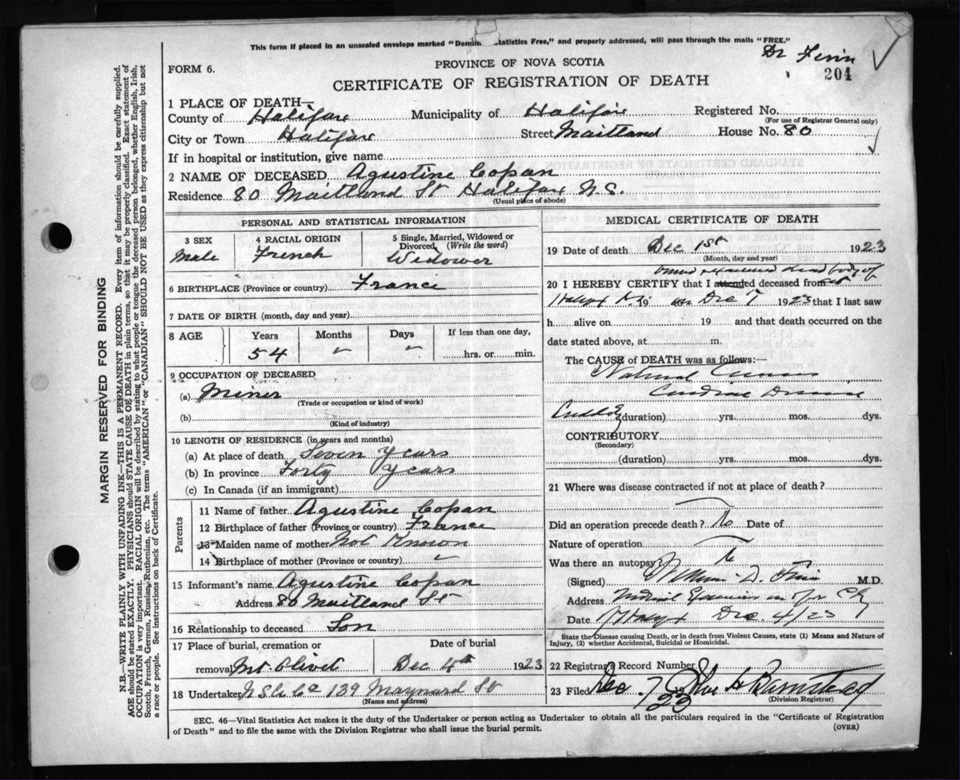 This form if placed in an unsealed envelope marked "Domin Statistics Free," and properly addressed, will pass through the mails "FREE."
Dr Finn
204
FORM 6.
PROVINCE OF NOVA SCOTIA
CERTIFICATE OF REGISTRATION OF DEATH
1 PLACE OF DEATH—
County of Halifax Municipality of Halifax Registered No.
(For use of Registrar General only)
City or Town Halifax Street Maitland House No. 80
If in hospital or institution, give name
2 NAME OF DECEASED Agustine Copan
Residence 80 Maitland St Halifax N.S.
(Usual place of abode)
PERSONAL AND STATISTICAL INFORMATION
3 SEX
Male
4 RACIAL ORIGIN
French
5 Single, Married, Widowed or
Divorced, (Write the word)
Widower
6 BIRTHPLACE (Province or country) France
7 DATE OF BIRTH (month, day and year)
8 AGE Years Months Days If less than one day,
54 hrs. or min.
9 OCCUPATION OF DECEASED
(a) Miner
(Trade or occupation or kind of work)
(b)
(Kind of industry)
10 LENGTH OF RESIDENCE (in years and months)
(a) At place of death Seven Years
(b) In province Forty Years
(c) In Canada (if an immigrant)
Parents
11 Name of father Agustine Copan
12 Birthplace of father (Province or country) France
13 Maiden name of mother Not Known
14 Birthplace of mother (Province or country)
15 Informant's name Agustine Copan
Address 80 Maitland St
16 Relationship to deceased Son
17 Place of burial, cremation or Date of burial
removal Mt Olivet Dec 4th 1923
18 Undertaker 139 Maynard St
(Name and address)
MEDICAL CERTIFICATE OF DEATH
19 Date of death Dec 1st 1923
(Month, day and year)
viewed dead body of
20 I HEREBY CERTIFY that I attended deceased from
19 Dec 1923 that I last saw
h alive on 19 and that death occurred on the
date stated above, at m.
The CAUSE of DEATH was as follows:
Natural Causes
Cardiac Disease
(duration) yrs. mos. dys.
CONTRIBUTORY
(Secondary)
(duration) yrs. mos. dys.
21 Where was disease contracted if not at place of death?
Did an operation precede death? No Date of
Nature of operation
Was there an autopsy? No
(Signed) William D. Finn M.D.
Address Medical Examiner
Date Dec. 4/23
State the Disease causing Death, or in death from Violent Causes, state (1) Means and Nature of
Injury, (2) whether Accidental, Suicidal or Homicidal.
22 Registrars Record Number
23 Filed Dec 7 23
(Division Registrar)
SEC. 46—Vital Statistics Act makes it the duty of the Undertaker or person acting as Undertaker to obtain all the particulars required in the "Certificate of Registration
of Death" and to file the same with the Division Registrar who shall issue the burial permit.
(OVER)
MARGIN RESERVED FOR BINDING
N.B.—WRITE PLAINLY WITH UNFADING INK—THIS IS A PERMANENT RECORD. Every item of information should be carefully supplied.
AGE should be stated EXACTLY. PHYSICIANS should STATE CAUSE OF DEATH in plain terms, so that it may be properly classified. Exact statement of
OCCUPATION is very important. RACIAL ORIGIN will be described by stating to what people or tongue the deceased person belonged, whether English, Irish,
Scotch, French, German, Russian, Ruthenian, etc. The terms "AMERICAN" or "CANADIAN" SHOULD NOT BE USED as they express citizenship but not
a race or people. See instructions on back of Certificate.